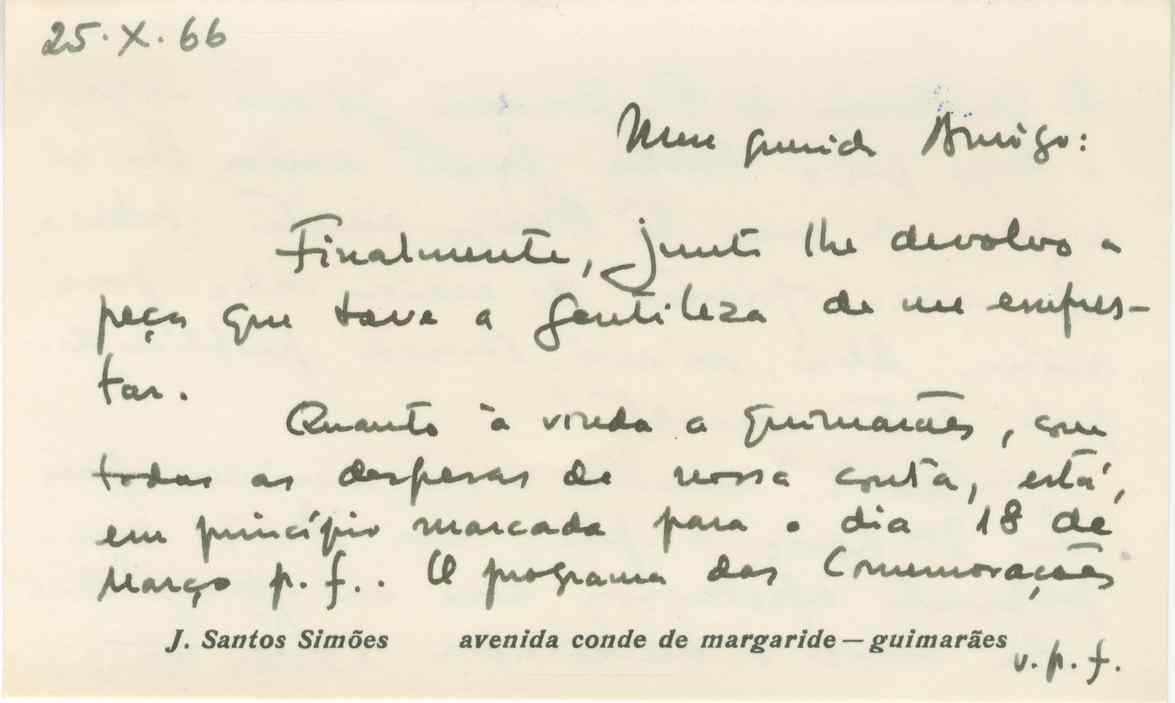 25.X.66
Meu querido Amigo:
Finalmente, junto lhe devolvo a
peça que teve a gentileza de me empres-
tar.
Quanto à vinda a Guimarães, com
todas as despesas de nossa conta, está,
em princípio marcada para o dia 18 de
Março p.f.. O programa das Comemorações
J. Santos Simões avenida conde de margaride — guimarães
v.p.f.